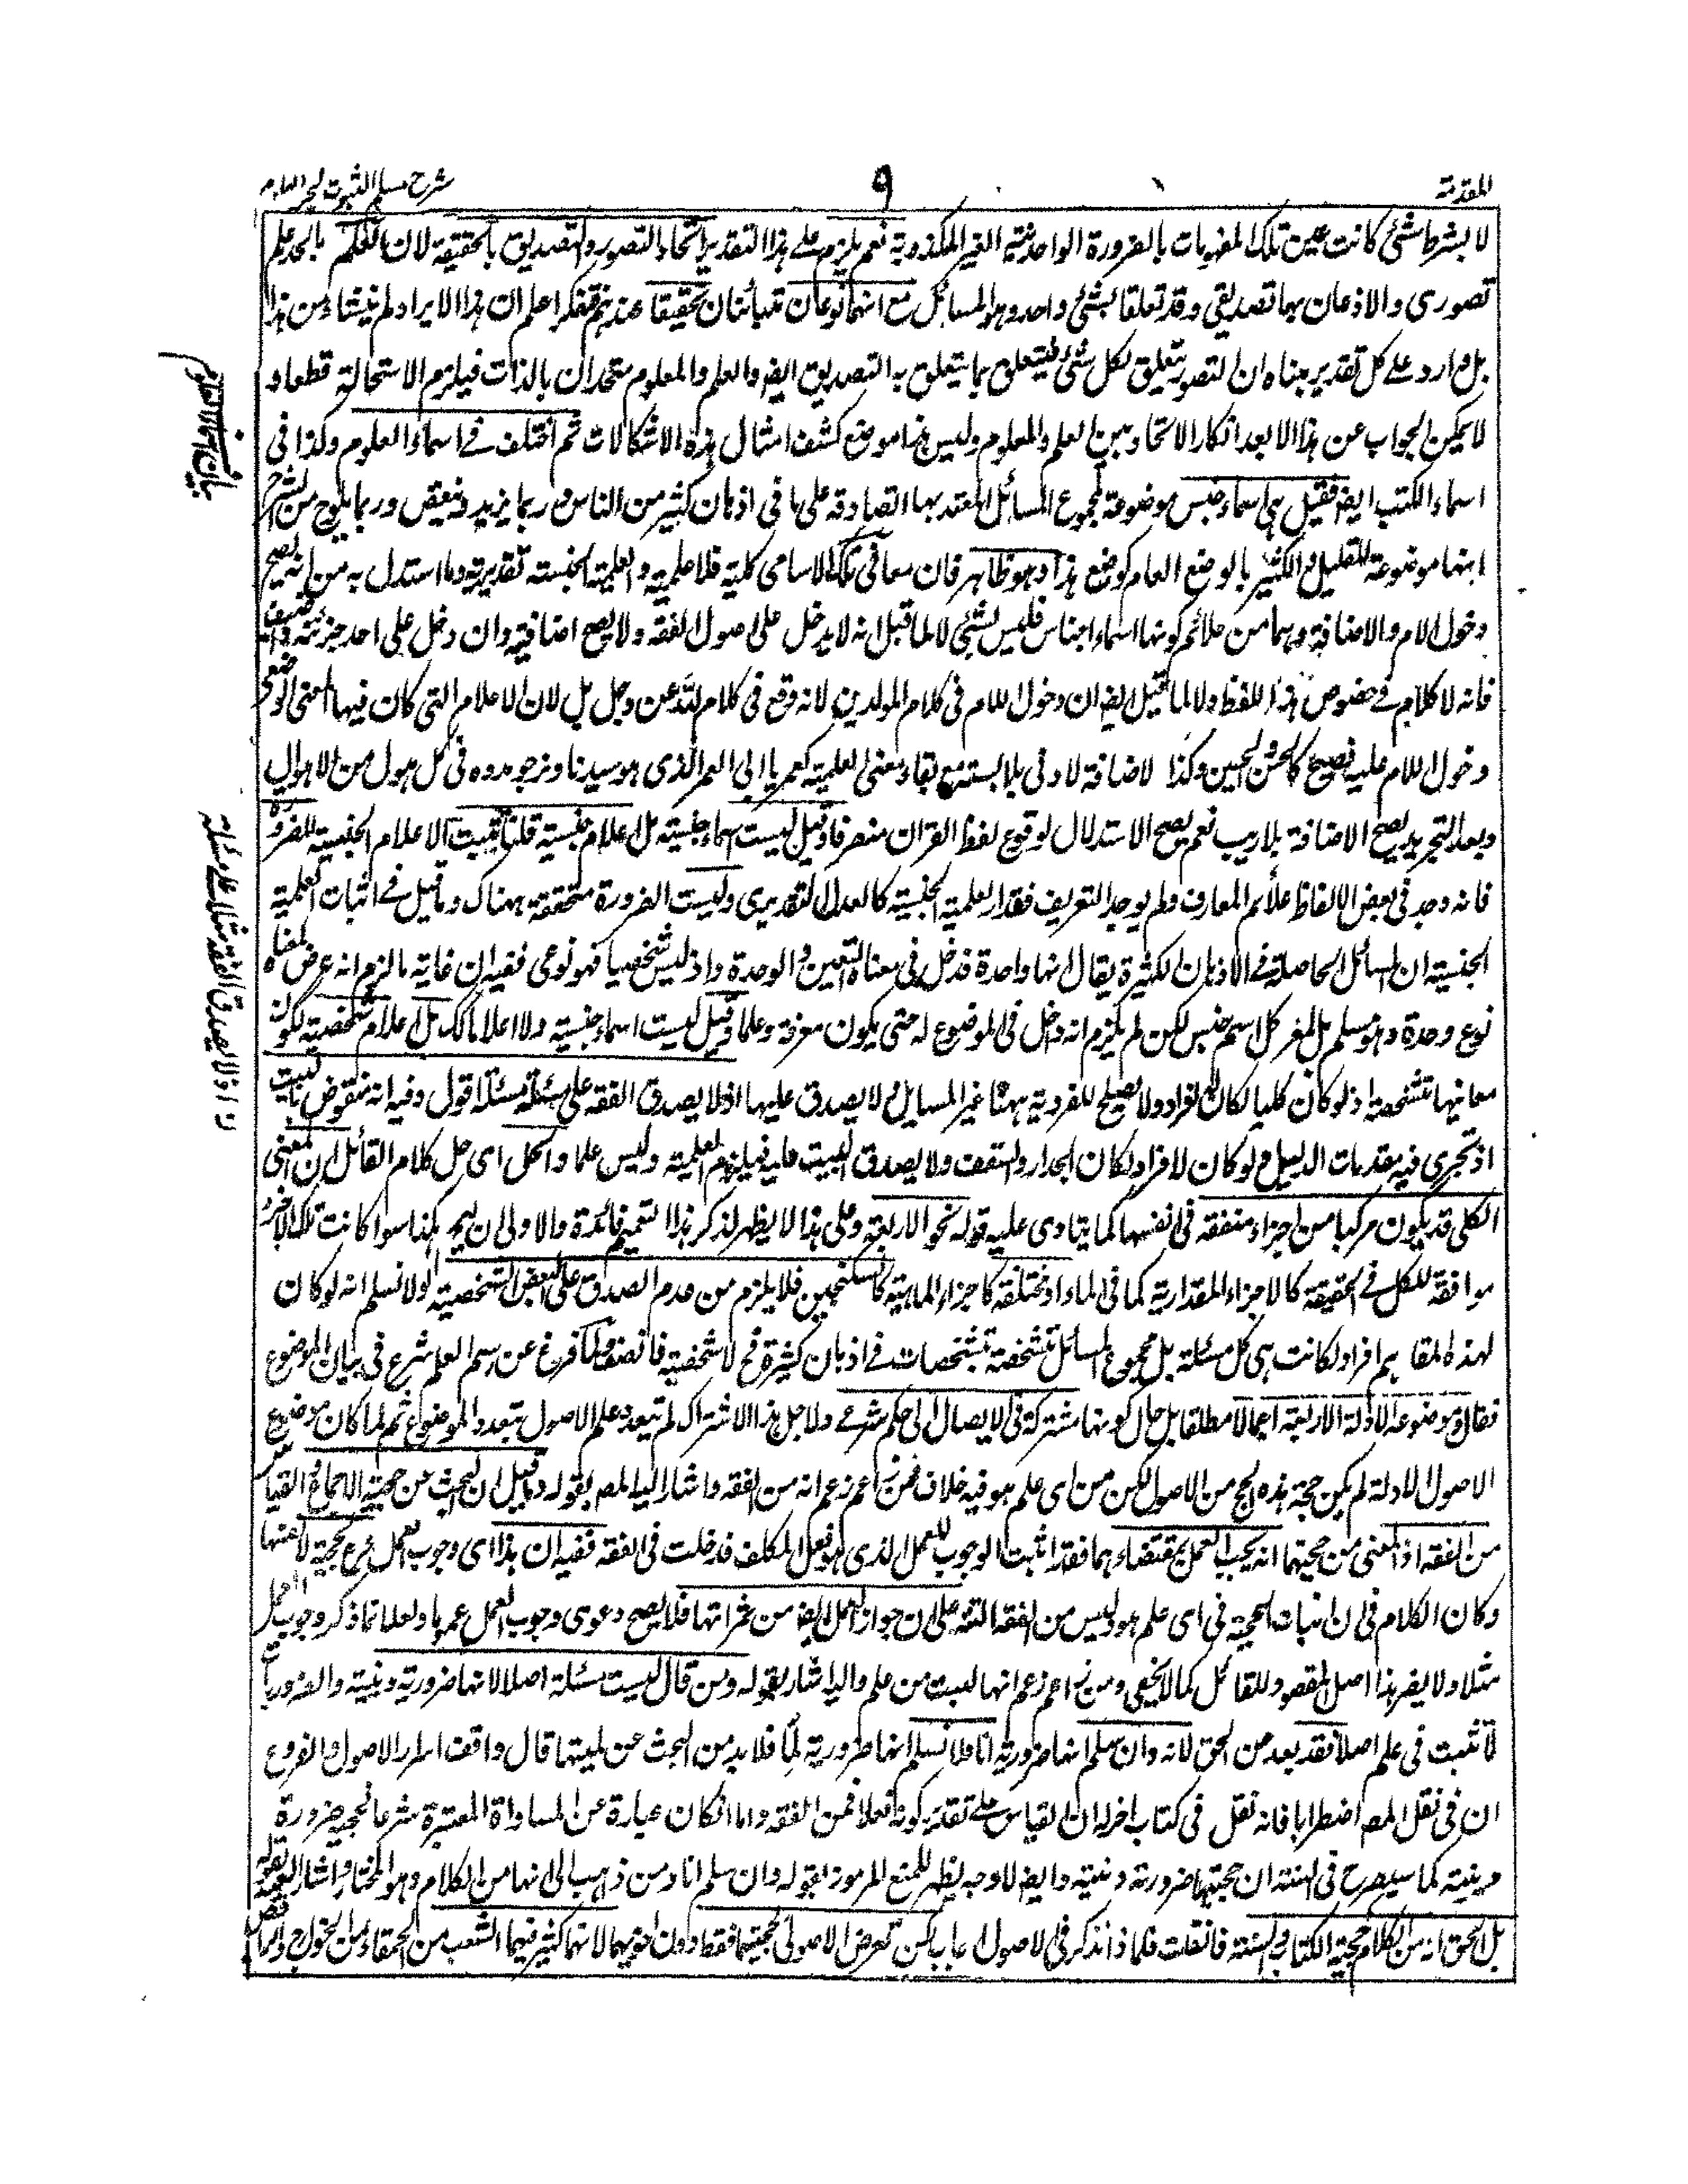 المقدمة
٩
شرح مسلم الثبوت لبحر العلوم
لا بشرط شئ كانت عين تلك المفهومات بالضرورة الواحدة الغير المكذوبة نعم يلزم على هذا التقدير اتحاد التصور والتصديق بالحقيقة لان العلم بالحد علم
تصورى والاذعان بها تصديقى وقد تعلقا بشئ واحد وهو المسائل مع انهما نوعان متبائنان تحقيقا عندهم فتفكر اعلم ان هذا الايراد لم ينشاء من هذا
بل وارد على كل تقدير مبناه ان التصور يتعلق بكل شئ فيتعلق بما يتعلق به التصديق ايضا والعلم والمعلوم متحدان بالذات فيلزم الاستحالة قطعا و
لا يمكن الجواب عن هذا الا بعد انكار الاتحاد بين العلم والمعلوم وليس هذا موضع كشف امثال هذه الاشكالات ثم اختلف فى اسماء العلوم وكذا فى
اسماء الكتب ايضا فقيل هى اسماء جنس موضوعة لمجموع المسائل المعتد بها الصادقة على ما فى اذهان كثير من الناس و ربما يزيد وينقص وربما يلوح من الشرح
انها موضوعة للقليل والكثير بالوضع العام كوضع هذا وهو ظاهر فان معانى تلك الاسامى كلية فلا علمية والعلمية الجنسية تقديرية وما استدل به من انه يصح
دخول اللام والاضافة وهما من علائم كونها اسماء اجناس فليس بشئ لا لما قيل انه لا يدخل على اصول الفقه ولا يصح اضافته وان دخل على احد جزئيه
فانه لا كلام فى خصوص هذا اللفظ ولا لما قيل ايضا ان دخول اللام فى كلام المولدين لانه وقع فى كلام الله عز وجل بل لان الاعلام التى كان فيها المعنى الوصفى
دخول اللام عليه فصيح كالحسن والحسين وكذا الاضافة لادنى ملابسته مع بقاء معنى العلمية كعمريا الى العمر الذى هو سيدنا ونرجو مدده فى كل هول من الاهوال
وبعد التجريد يصح الاضافة بلا ريب نعم يصح الاستدلال لوقوع لفظ القرآن منصرفا وقيل ليست اسماء جنسية بل اعلام جنسية قلنا تثبت الاعلام الجنسية للضرورة
فانه وجد فى بعض الالفاظ علائم المعارف ولم يوجد التعريف فقدر العلمية الجنسية كالعدل التقديرى وليست الضرورة متحققة ههناك وما قيل فى اثبات العلمية
الجنسية ان المسائل الحاصلة فى الاذهان الكثيرة يقال انها واحدة فدخل فى معناه التعين والوحدة واذ ليس شخصيا فهو نوعى ففيه ان غايته ما لزم انه عرض لمعناه
نوع وحدة وهو مسلم بل لمفهوم كل اسم جنس لكن لم يلزم انه دخل فى الموضوع له حتى يكون معرفة وعلما وقيل ليست اسماء جنسية ولا اعلاما كك بل اعلام شخصية لكون
معانيها متشخصة اذ لو كان كليا لكان له افراد ولا يصلح للفردية ههنا غير المسايل ولا يصدق عليها اذ لا يصدق الفقه على مسئلة مسئلة اقول وفيه انه منقوض بالبيت
اذ تجرى فيه مقدمات الدليل ولو كان له افراد لكان الجدار والسقف ولا يصدق البيت عليه فيلزم العلمية وليس علما والحل اى حل كلام القائل ان المعنى
الكلى قد يكون مركبا من اجزاء متفقة فى انفسها كما يتادى عليه قوله نحو الاربعة وعلى هذا لا يظهر لذكر هذا التعميم فائدة والاولى ان يحرر هكذا سوا كانت تلك الاجزاء
موافقة للكل فى الحقيقة كالاجزاء المقدارية كما فى الماء او مختلفة كاجزاء الماهية كالسكنجبين فلا يلزم من عدم الصدق على البعض الشخصية ولا نسلم انه لو كان
لهذه المفاهيم افراد لكانت هى كل مسئلة بل مجموع المسائل متشخصة بتشخصات فى اذهان كثيرة فح لا شخصية فانصف ولما فرغ عن رسم العلم شرع فى بيان الموضوع
فقال وموضوعه الادلة الاربعة اجمالا لا مطلقا بل حال كونها مشتركة فى الايصال الى حكم شرعى ولاجل هذا الاشتراك لم يتعدد علم الاصول بتعدد الموضوع ثم لما كان موضوع
الاصول الادلة لم يكن حجة هذه الحجج من الاصول لكن من اى علم هو فيه خلاف فمن زاعم زعم انه من الفقه واشار اليه المصـ بقوله وما قيل ان البحث عن حجية الاجماع والقياس
من الفقه اذ المعنى من حجيتهما انه يجب العمل بمقتضاهما فقد اثبت الوجوب للعمل الذى هو فعل المكلف فدخلت فى الفقه ففيه ان هذا اى وجوب العمل فرع الحجية لا عينها
وكان الكلام فى ان اثبات الحجية فى اى علم هو وليس من الفقه البتة على ان جواز العمل ايضا من ثمراتها فلا يصح دعوى وجوب العمل عموما ولعله انما ذكر وجوب العمل
مثلا ولا يضر هذا اصل المقصود للقائل كما لا يخفى ومن زاعم زعم انها ليست من علم واليه اشار بقوله ومن قال ليست مسئلة اصلا لانها ضرورية دينية والضروريات
لا تثبت فى علم اصلا فقد بعد من الحق لانه وان سلم انها ضرورية انا فلا نسلم انها ضرورية لما فلا بد من البحث عن لميتها قال واقف اسرار الاصول والفروع
ان فى نقل المصـ اضطرابا فانه نقل فى كتاب اخر له ان القياس على تقدير كونه فعلا فمن الفقه واما ان كان عبارة عن المساواة المعتبرة شرعا فحجيته ضرورة
دينية كما سيصرح فى السنة ان حجيتها ضرورية دينية وايضا لا وجه يظهر للمنع المرموز بقوله وان سلم انا ومن ذاهب الى انها من الكلام وهو المختار واشار اليه بقوله
بل الحق انه من الكلام كحجية الكتاب والسنة فان قلت فلماذا تذكر فى الاصول اجاب لكن تعرض الاصولى لحجيتهما فقط دون اخويهما لانهما كثر فيهما الشعب من الحمقاء من الخوارج والروافض
بيان اسماء العلوم
اذ لا يصدق الفقه مثلا على مسئلة